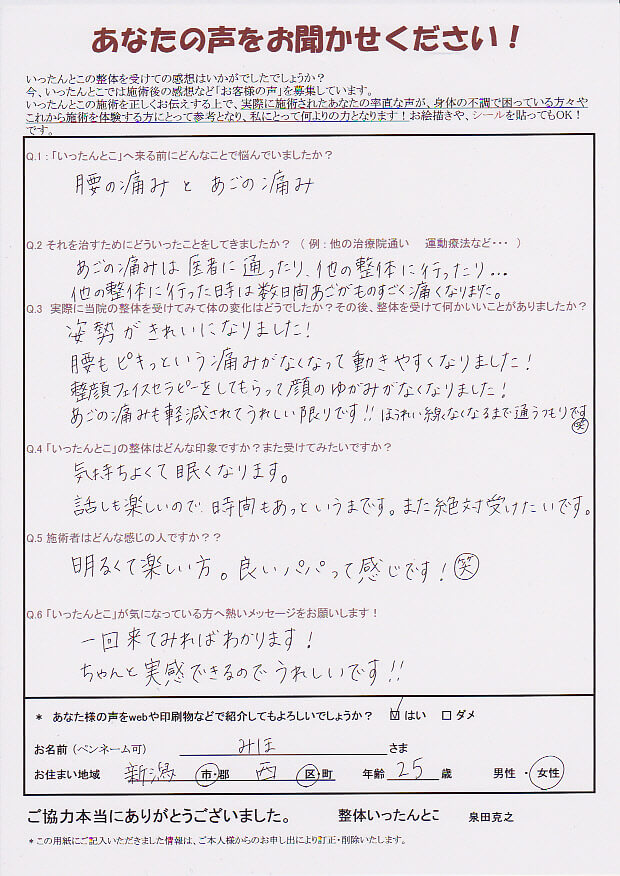 あなたの声をお聞かせください！
いったんとこの整体を受けての感想はいかがでしたでしょうか？
今、いったんとこでは施術後の感想など「お客様の声」を募集しています。
いったんとこの施術を正しくお伝えする上で、実際に施術されたあなたの率直な声が、身体の不調で困っている方々や
これから施術を体験する方にとって参考となり、私にとって何よりの力となります！お絵描きや、シールを貼ってもOK！
です。
Q.1：「いったんとこ」へ来る前にどんなことで悩んでいましたか？
腰の痛みと あごの痛み
Q.2 それを治すためにどういったことをしてきましたか？（例：他の治療院通い　運動療法など・・・）
あごの痛みは医者に通ったり、他の整体に行ったり...
他の整体に行った時は数日間あごがものすごく痛くなりました。
Q.3 実際に当院の整体を受けてみて体の変化はどうでしたか？その後、整体を受けて何かいいことがありましたか？
姿勢がきれいになりました！
腰もピキっという痛みがなくなって動きやすくなりました！
整顔フェイスセラピーをしてもらって顔のゆがみがなくなりました！
あごの痛みも軽減されてうれしい限りです!! ほうれい線なくなるまで通うつもりです
笑
Q.4「いったんとこ」の整体はどんな印象ですか？また受けてみたいですか？
気持ちよくて眠くなります。
話しも楽しいので、時間もあっというまです。また絶対受けたいです。
Q.5 施術者はどんな感じの人ですか？？
明るくて楽しい方。良いパパって感じです！ 笑
Q.6「いったんとこ」が気になっている方へ熱いメッセージをお願いします！
一回来てみればわかります！
ちゃんと実感できるのでうれしいです!!
＊ あなた様の声をwebや印刷物などで紹介してもよろしいでしょうか？ ☑はい □ダメ
お名前（ペンネーム可） みほ さま
お住まい地域 新潟 市・郡 西 区・町 年齢 25 歳 男性・女性
ご協力本当にありがとうございました。 整体いったんとこ 泉田克之
＊この用紙にご記入いただきました情報は、ご本人様からのお申し出により訂正・削除いたします。